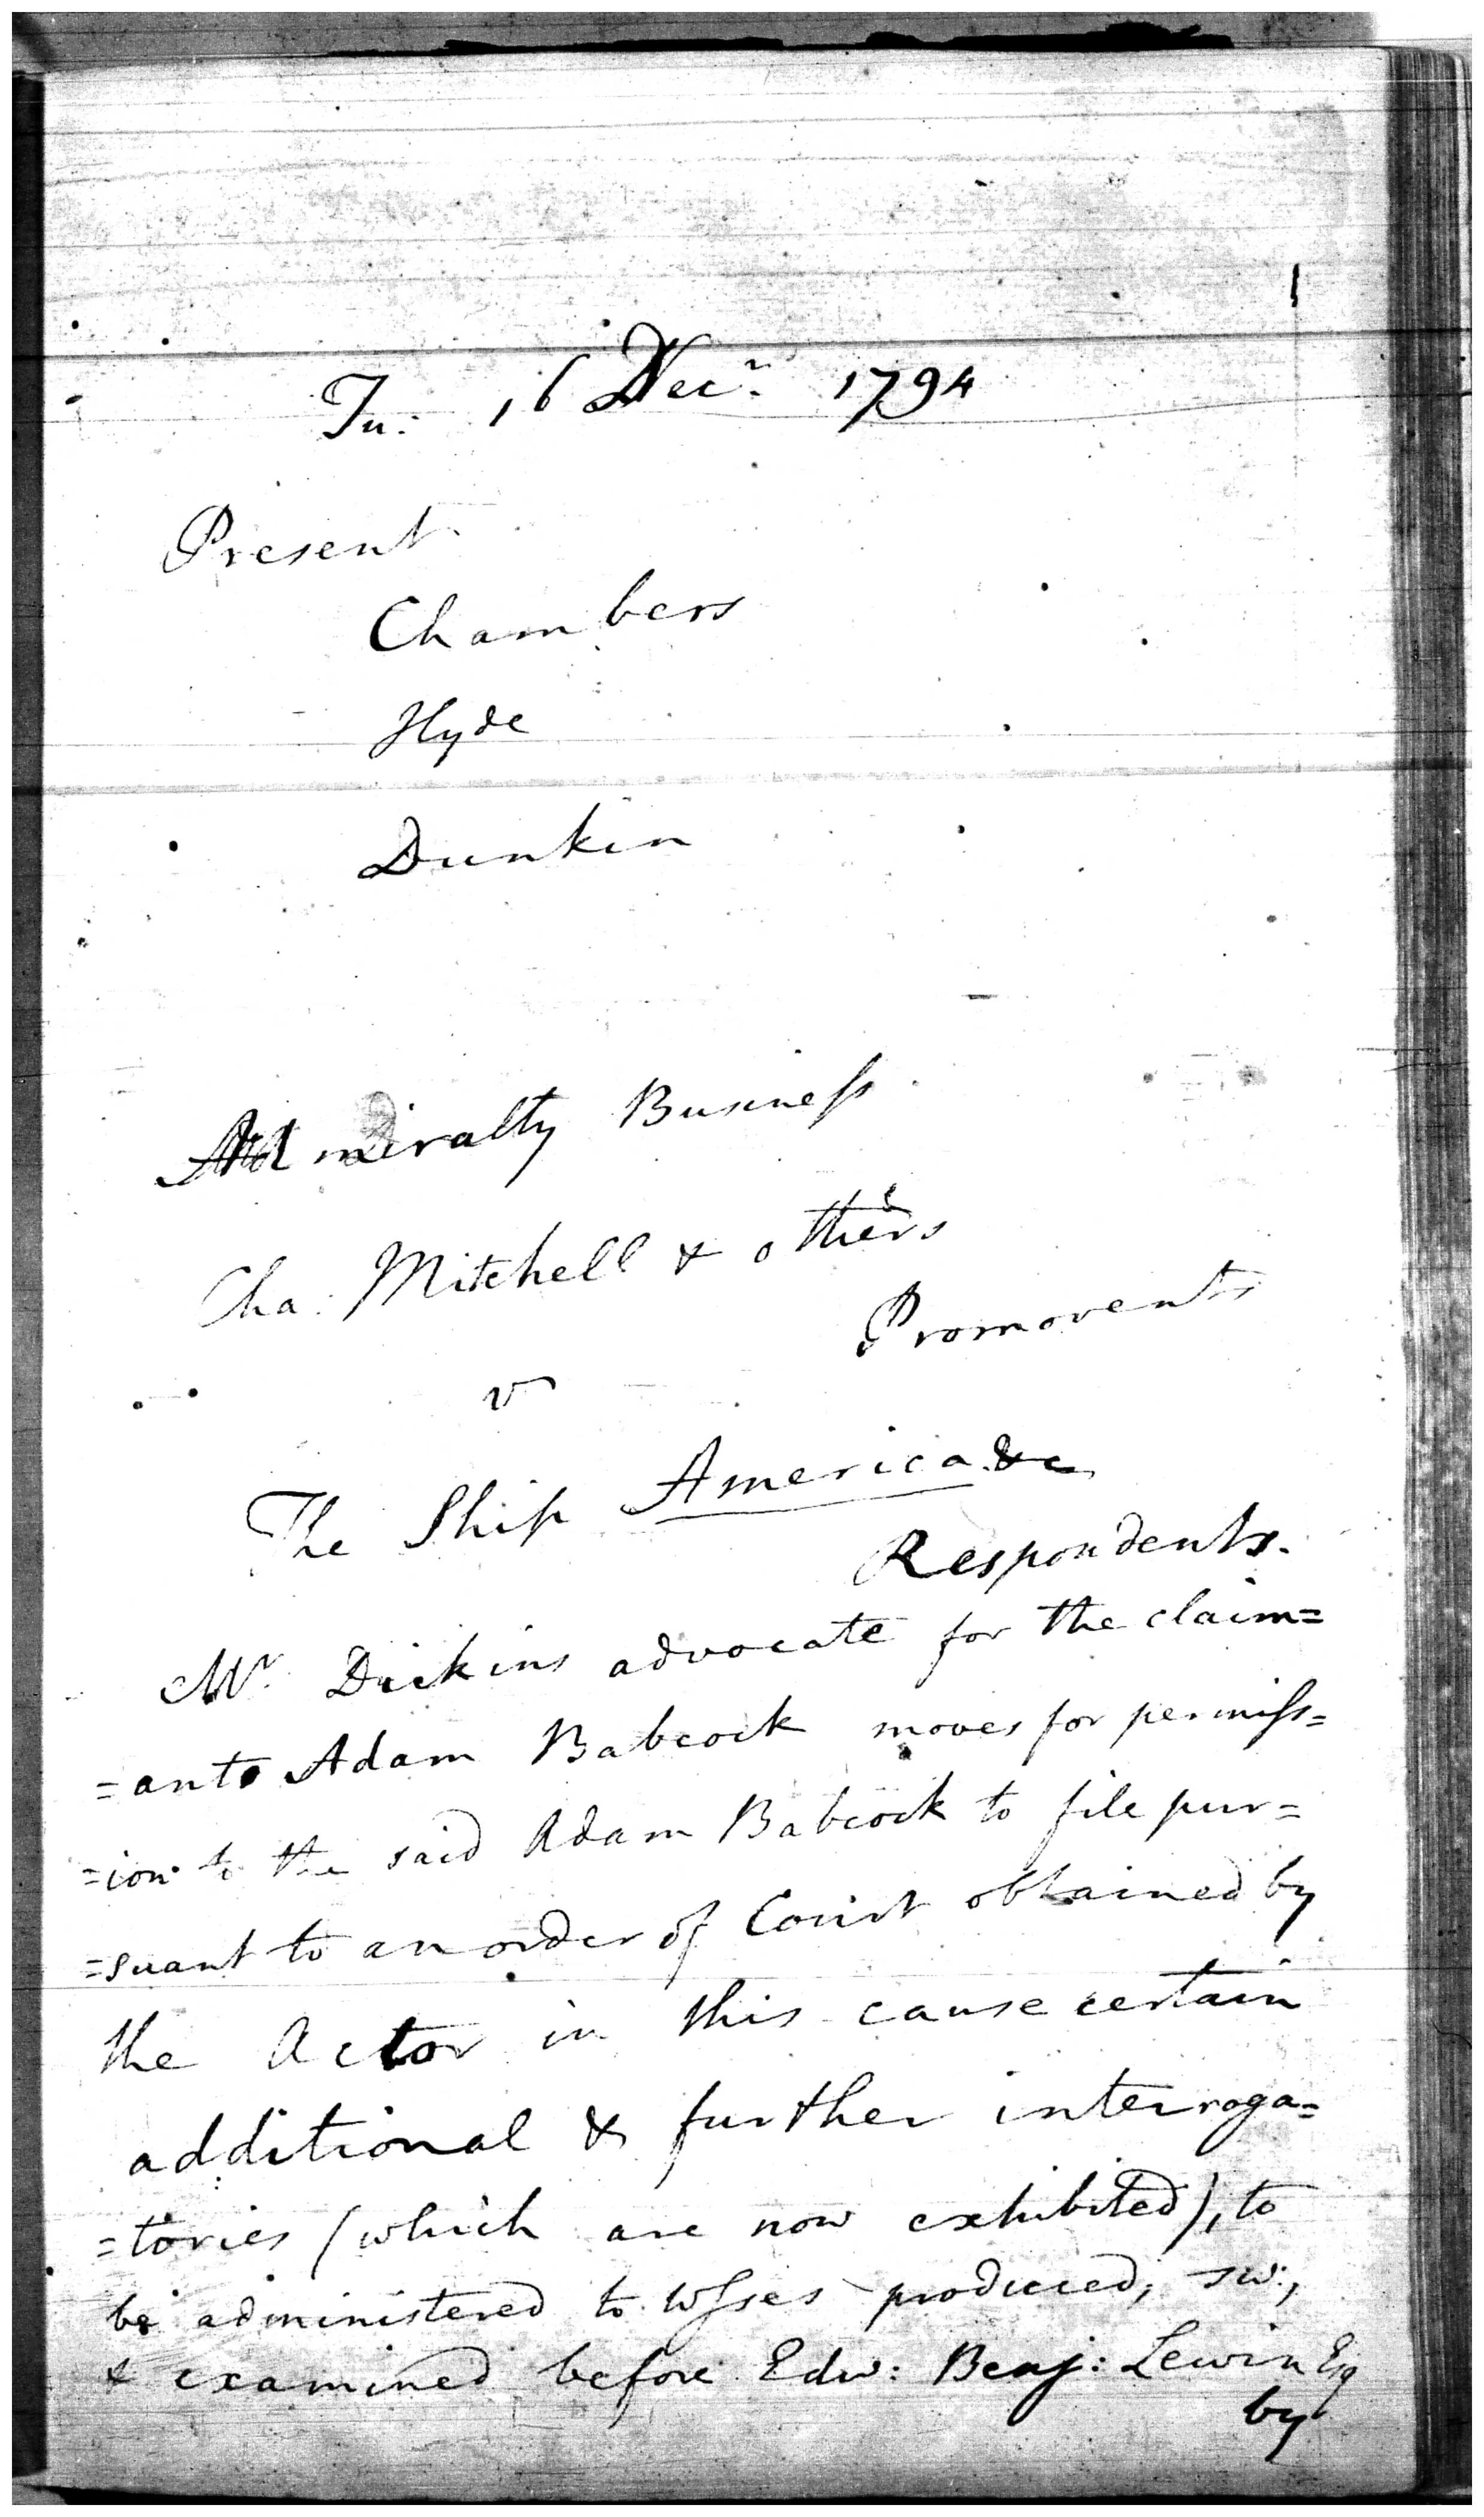 1
Tu: 16 Decr. 1794
Present
Chambers
Hyde
Dunkin
Admiralty Business
Cha: Mitchell & others
Promovents
v
The Ship America &c
Respondents.
Mr. Dickins advocate for the claim=
=ants Adam Babcock moves for permiss=
=ion to the said Adam Babcock to file pur=
=suant to an order of Court obtained by
the Actor in this cause certain
additional & further interroga=
=tories (which are now exhibited), to
be administered to Wsses produced, sw:,
& examined before Edw: Benj: Lewin Esq
by